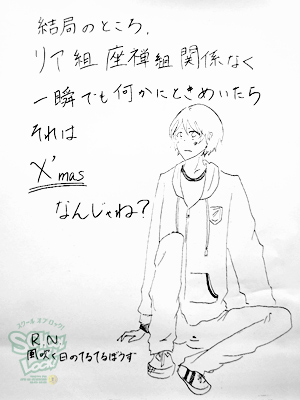 結局のところ、
リア組 座禅組 関係なく
一瞬でも何かにときめいたら
それは
X'mas
なんじゃね？
スクール オブ ロック!
School of Lock!
RN
風吹く日のてるてるぼうず